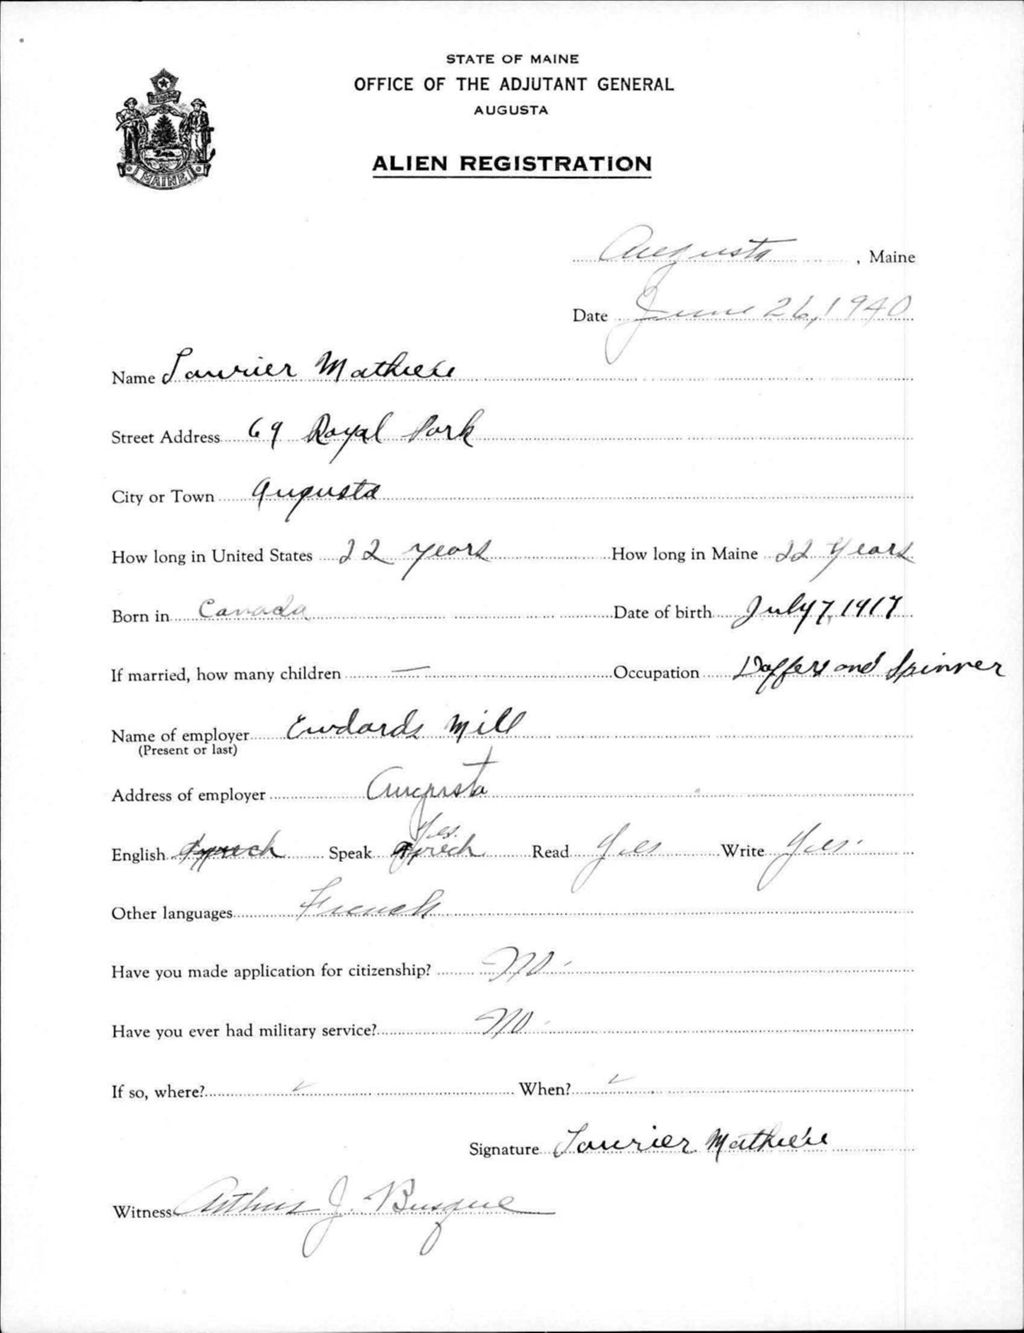 STATE OF MAINE
OFFICE OF THE ADJUTANT GENERAL
AUGUSTA
ALIEN REGISTRATION
MAINE
Augusta, Maine
Date June 26, 1940
Name Laurier Mathieu
Street Address 69 Royal Park
City or Town Augusta
How long in United States 22 years How long in Maine 22 years
Born in Canada Date of birth July 7, 1917
If married, how many children — Occupation Doffers and Spinner
Name of employer Ewdards Mill
(Present or last)
Address of employer Augusta
English Speak Yes. Read Yes Write Yes.
Other languages French
Have you made application for citizenship? No.
Have you ever had military service? No.
If so, where? When?
Signature Laurier Mathieu
Witness Arthur J. Busque